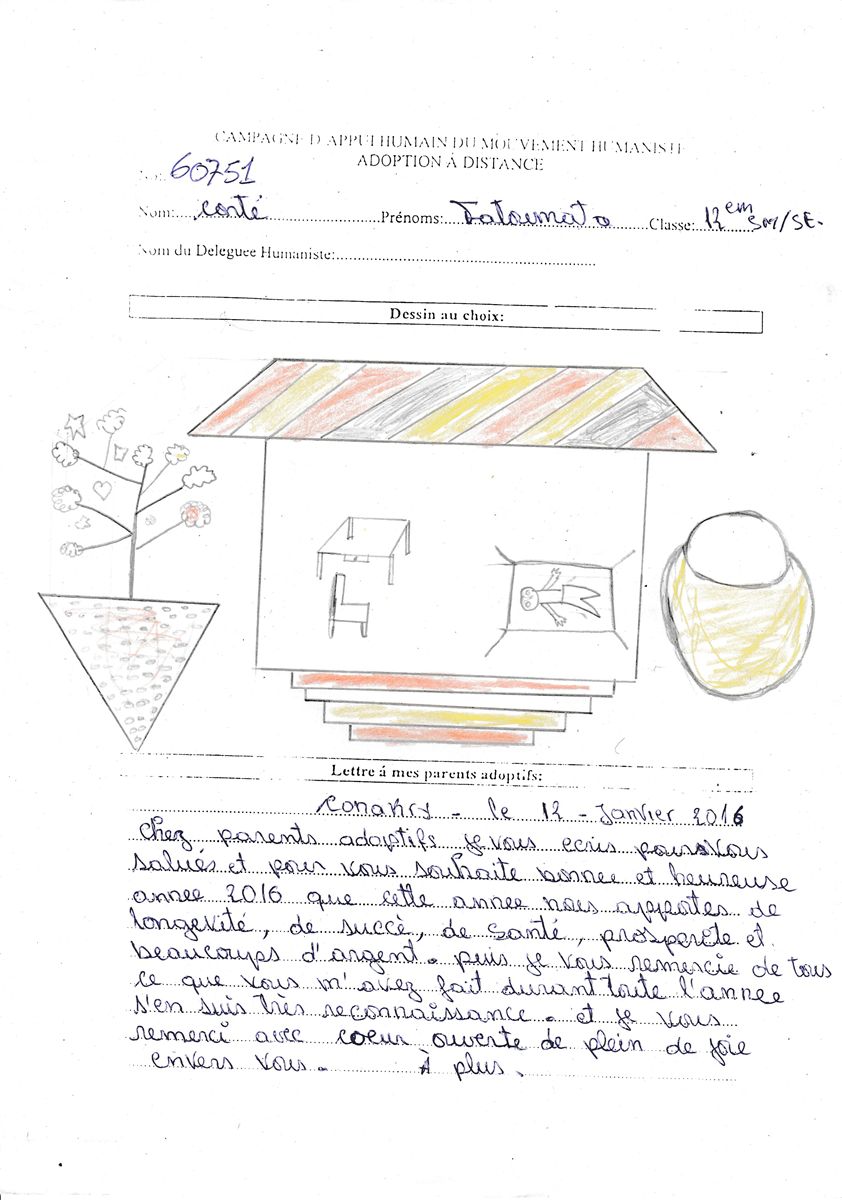 CAMPAGNE D'APPUI HUMAIN DU MOUVEMENT HUMANISTE
ADOPTION À DISTANCE
No: 60751
Nom: conté Prénoms: Fatoumata Classe: 12em SM/SE.
Nom du Deleguee Humaniste:
Dessin au choix:
Lettre á mes parents adoptifs:
Conakry - le 12 - Janvier 2016
Chez parents adoptifs je vous ecris pour vous
salués et pour vous souhaite bonnee et heureuse
annee 2016 que cette annee nous apportes de
longevité, de succè, de santé, prosperete et
beaucoups d'argent. puis je vous remercie de tous
ce que vous m'avez fait durant toute l'annee
s'en suis très reconnaissance. et je vous
remerci avec coeur ouverte de plein de joie
envers vous. À plus.